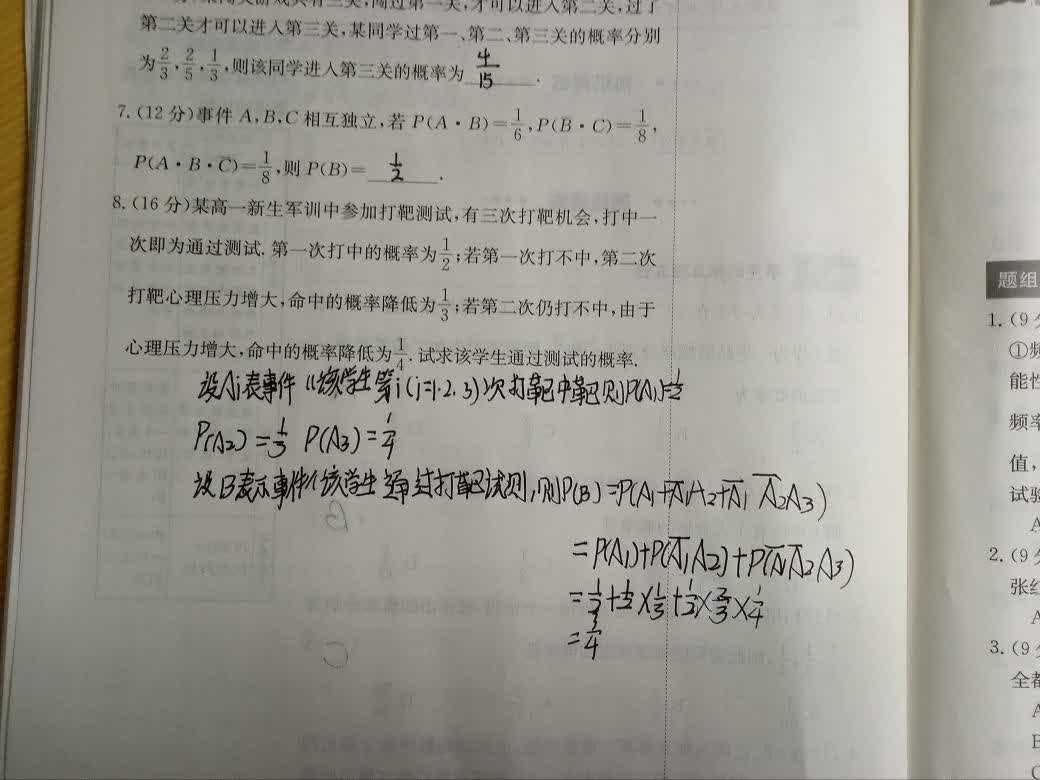 某闯关游戏共有三关,闯过第一关,才可以进入第二关,过了
第二关才可以进入第三关,某同学过第一、第二、第三关的概率分别
为2/3,2/5,1/3,则该同学进入第三关的概率为 4/15 .
7.(12分)事件A,B,C相互独立,若P(A·B)=1/6,P(B̄·C)=1/8,
P(A·B·C̄)=1/8,则P(B)= 1/2 .
8.(16分)某高一新生军训中参加打靶测试,有三次打靶机会,打中一
次即为通过测试.第一次打中的概率为1/2;若第一次打不中,第二次
打靶心理压力增大,命中的概率降低为1/3;若第二次仍打不中,由于
心理压力增大,命中的概率降低为1/4.试求该学生通过测试的概率.
设Ai表事件“该学生第i(i=1.2.3)次打靶中靶则P(A1)=1/2
P(A2)=1/3 P(A3)=1/4
设B表示事件“该学生通过打靶测试则,则P(B)=P(A1+Ā1A2+Ā1 Ā2A3)
=P(A1)+P(Ā1A2)+P(Ā1Ā2A3)
=1/2+1/2×1/3+1/2×2/3×1/4
=3/4
题组
1.(9分
①频
能性
频率
值,
试验
A
2.(9分
张红
A
3.(9分
全都
A
B
C